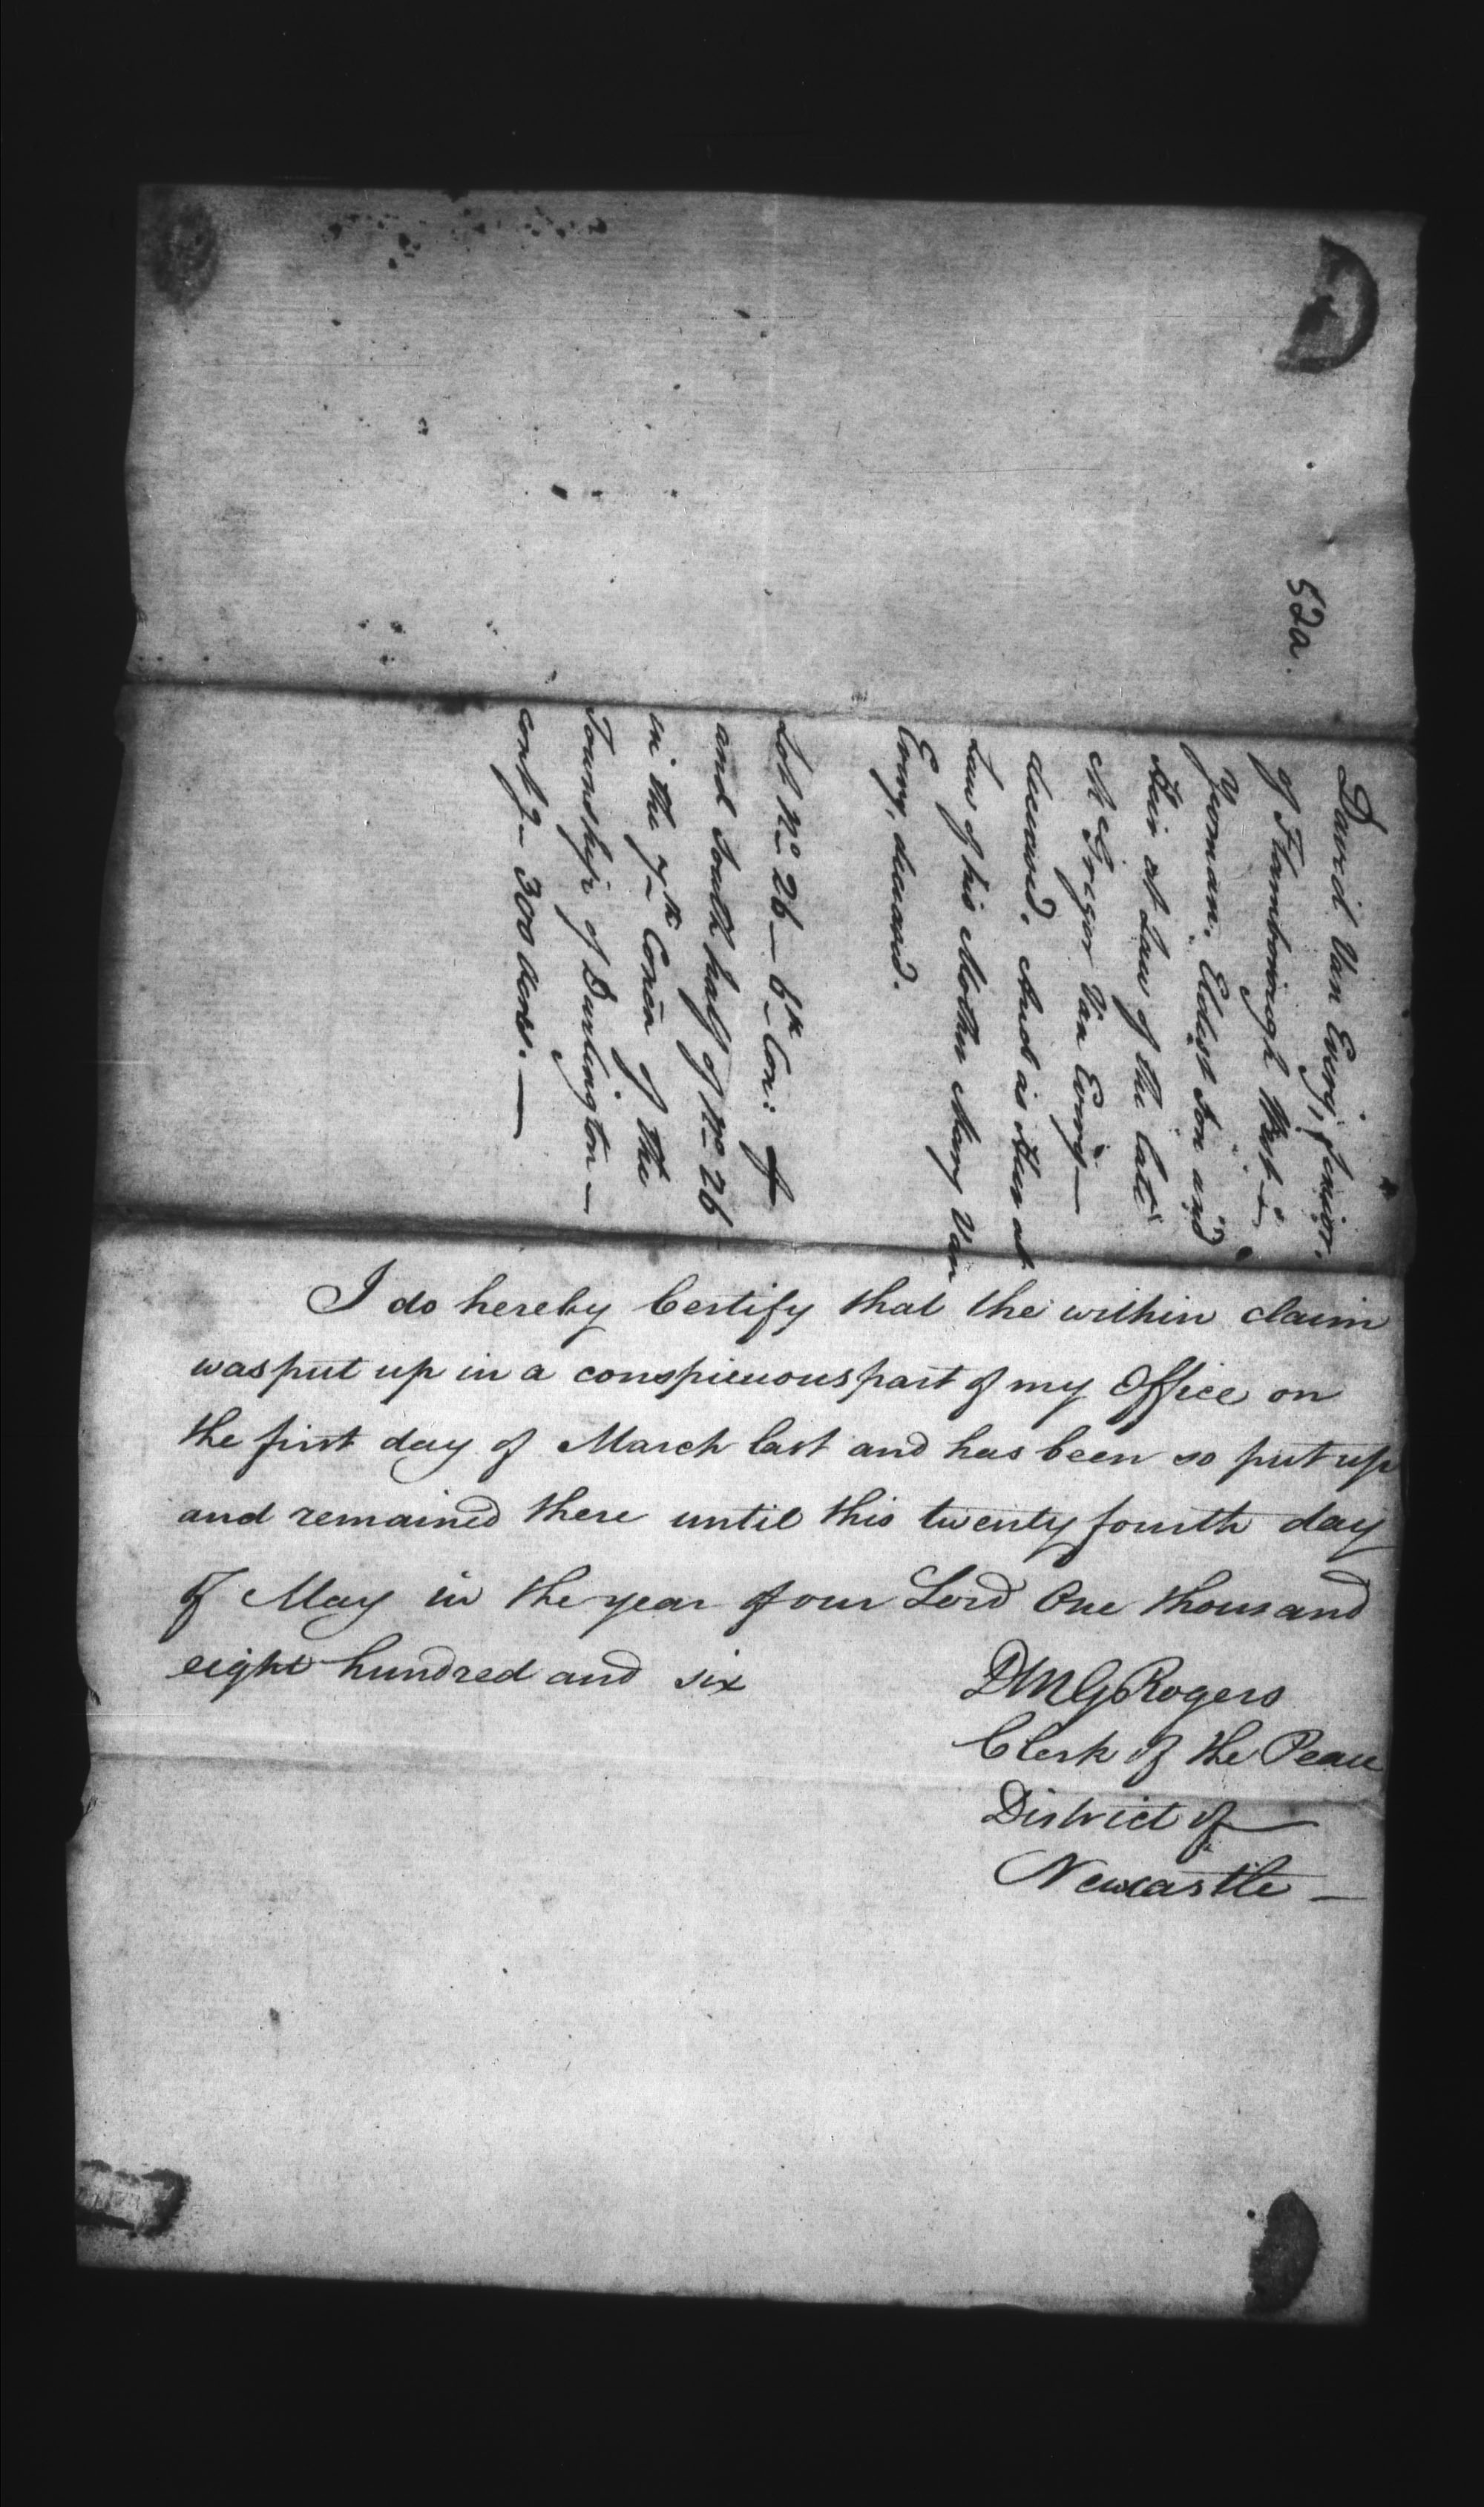 52a.
David Van Every, Junior.
of Flamborough West —
Yeoman. Eldest Son and
Heir at Law of the late
McGregor Van Every —
deceased. And as Heir at
Law of his Mother Mary Van
Every, deceased.
Lot No 26 — 6th Con: &
and South half of No 26
in the 7th Concn of the
Township of Darlington —
contg — 300 Acres. —
I do hereby Certify that the within claim
was put up in a conspicuous part of my Office on
the first day of March last and has been so put up
and remained there until this twenty fourth day
of May in the year of our Lord One thousand
eight hundred and six
DMG Rogers
Clerk of the Peace
District of —
Newcastle —